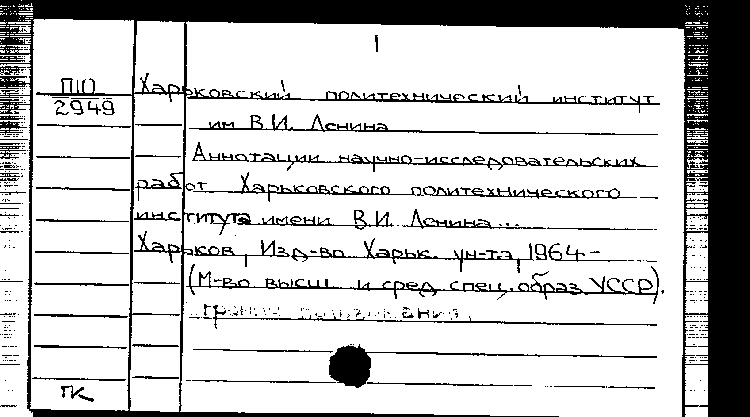 1
П10
2949
Харьковский политехнический институт
им В.И. Ленина
Аннотации научно-исследовательских
работ Харьковского политехнического
института имени В.И. Ленина...
Харьков, Изд-во Харьк. ун-та, 1964-
(М-во высш и сред спец. образ УССР).
ПК